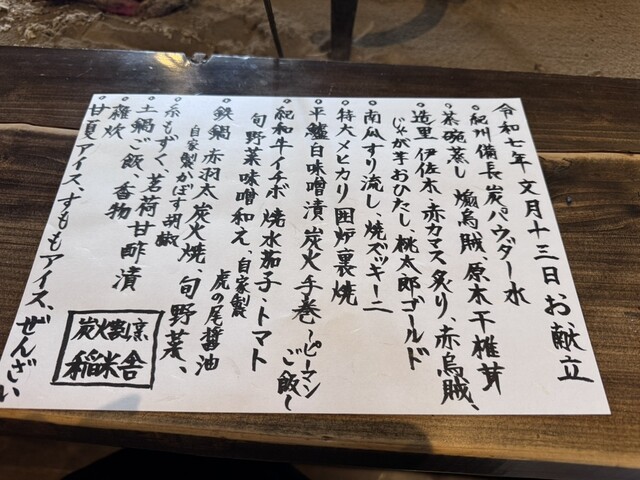 令和七年 文月十三日お献立
紀州備長炭パウダー水
茶碗蒸し 煽烏賊、原木干椎茸
造里 伊佐木、赤カマス炙り、赤烏賊、
じゃが芋おひたし、桃太郎ゴールド
南瓜すり流し、焼ズッキーニ
特大メヒカリ囲炉裏焼
平鱸白味噌漬炭火手巻〜ピーマン
ご飯〜
紀和牛イチボ 焼水茄子、トマト
旬野菜味噌和え、自家製
虎の尾醤油
鉄鍋 赤羽太炭火焼、旬野菜、
自家製かぼす胡椒
糸もずく、茗荷甘酢漬
土鍋ご飯、香物
雑炊
甘夏アイス、すももアイス、ぜんざい
炭火割烹
稲米舎